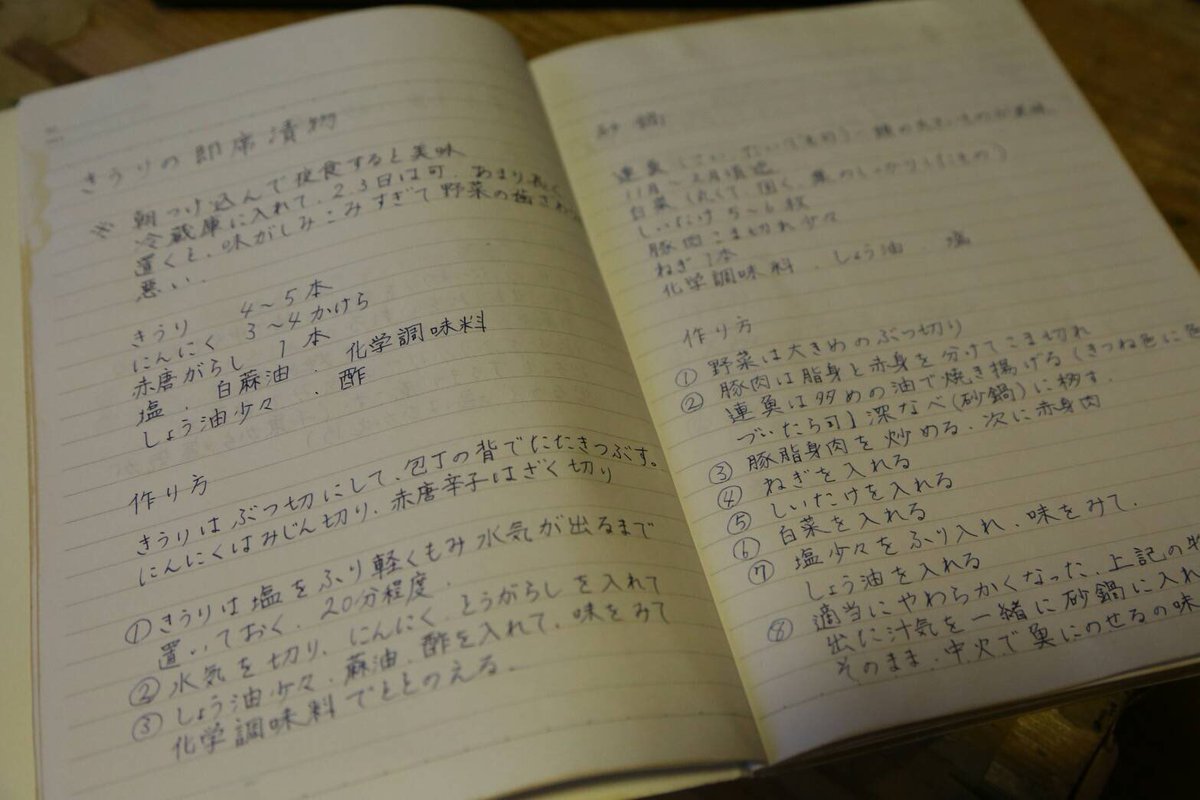 きうりの即席漬物
※ 朝つけ込んで夜食すると美味
冷蔵庫に入れて、2.3日は可、あまり長く
置くと、味がしみこみすぎて野菜の歯ざわ
悪い、
きうり 4〜5本
にんにく 3〜4かけら
赤唐がらし 1本
塩、白蔴油、化学調味料
しょう油少々、酢
作り方
きうりはぶつ切にして、包丁の背でたたきつぶす。
にんにくはみじん切り、赤唐辛子はざく切り
① きうりは塩をふり軽くもみ水気が出るまで
置いておく、20分程度、
② 水気を切り、にんにく、とうがらしを入れて
③ しょう油少々、蔴油、酢を入れて、味をみて
化学調味料でととのえる、
砂鍋
連魚
11月〜2月頃迄
白菜 (丸くて、固く、葉のしっかりしたもの)
しいたけ 5〜6枚
豚肉こま切れ少々
ねぎ1本
化学調味料、しょう油、塩
作り方
① 野菜は大きめのぶつ切り
② 豚肉は脂身と赤身を分けてこま切れ
連魚は多めの油で焼き揚げる(きつね色に色
づいたら可)深なべ(砂鍋)に移す、
③ 豚脂身肉を炒める、次に赤身肉
④ ねぎを入れる
⑤ しいたけを入れる
⑥ 白菜を入れる
⑦ 塩少々をふり入れ、味をみて、
しょう油を入れる
⑧ 適当にやわらかくなった、上記の物
出た汁気を一緒に砂鍋に入れ
そのまま、中火で魚にのせるの味